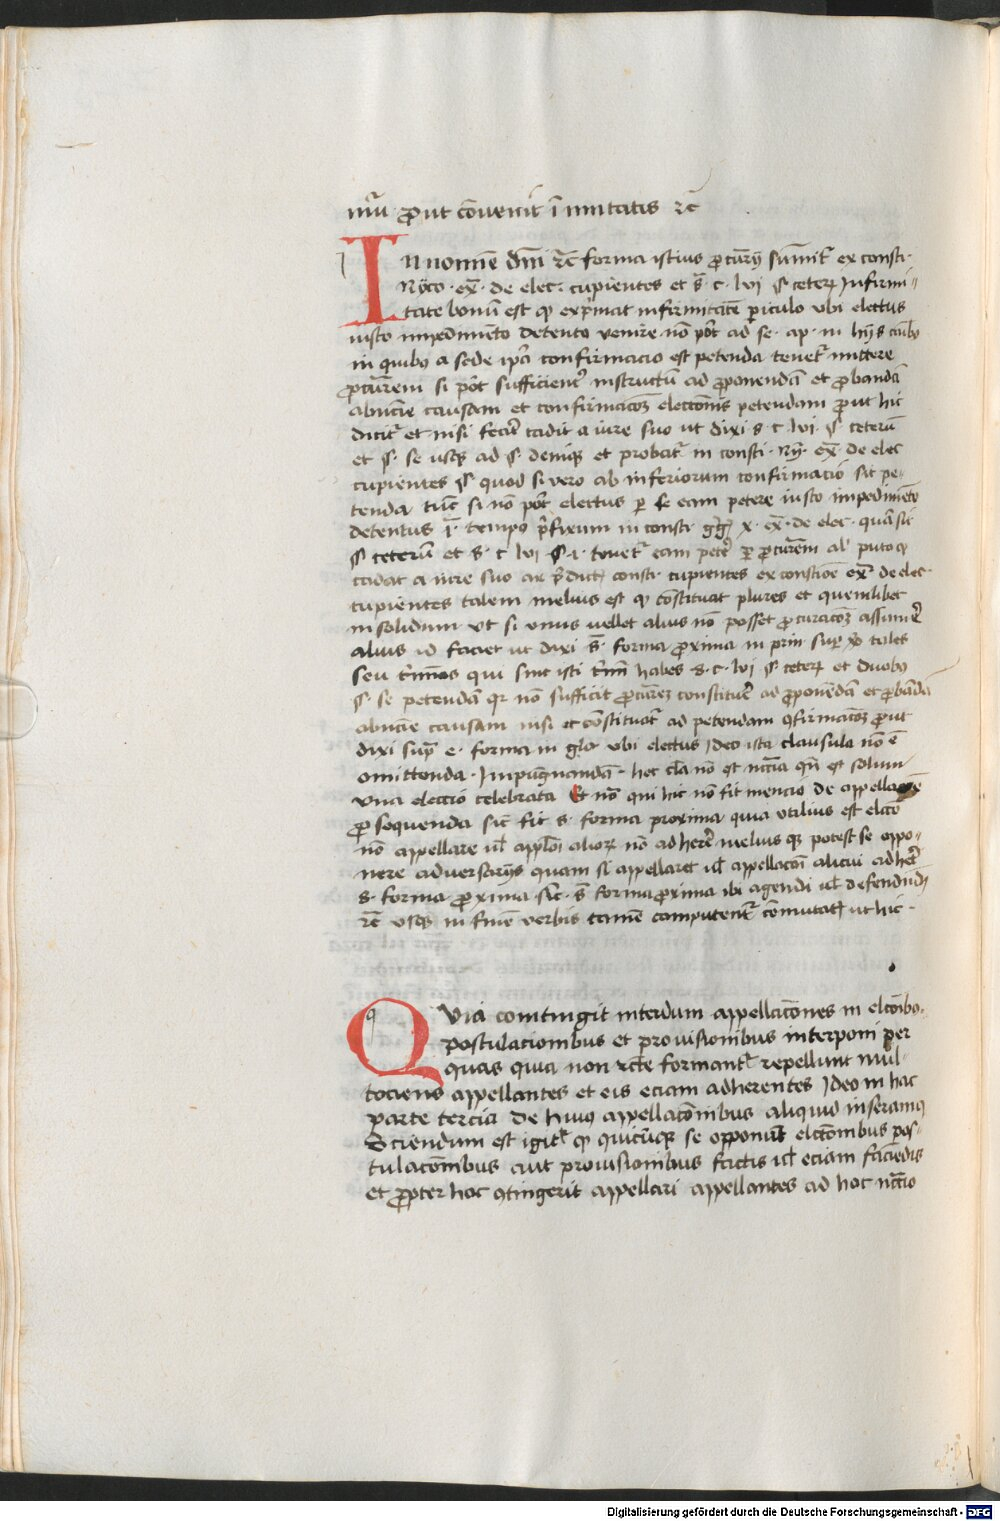 mu᷑ ꝓut cōuenit ī mutatis ⁊c̄
In noīe dn̄i ⁊c̄ forma istius ꝓcurīj sumit᷑ ex consti·
Nyco· ex̄· de elec· cupientes et s̄· c· lvj § ceterꝫ Infirmi=
tate bonū est ꝙ exp̄mat infirmitatē periculo vbi electus
iusto impedimento detento venire nō pōt ad se· ap· in hijs casibꝯ
in quibꝯ a sede ip̄a confirmacio est petenda tenet᷑ mittere
ꝓcurēm si pōt sufficient᷑ instructū ad ꝓponendā et ꝓbandā
causam et confirmacōꝫ electōnis petendam ꝓut hic
dicit᷑ et nisi fecer᷑ cadit a iure suo ut dixi s· c· lvi· § ceterū
et §· se usqꝫ ad §· deniqꝫ et probat᷑ in consti· Ny· ex̄· de elec
cupientes § quod si vero ab inferiorum confirmacio sit pe-
tenda tūc si nō pōt electus ꝑ se eam petere iusto impedimēto
detentus ī· tempꝯ p̄fixum in consti· gg̅· x· ex̄· de elec· quā sit
§ ceterū et s· c lvi §·i· tenet᷑ eam peter᷑ ꝑ ꝓcurēm al᷑ puto ꝙ
cadat a iure suo ar p̄dict consti· cupientes ex constiōe ex̄ de elec·
cupientes talem melius est ꝙ cōstituat plures et quemlibet
in solidum vt si vnus vellet alius nō posset ꝓcuracōꝫ assumer᷑
alius id faciet ut dixi s̄· forma ꝓxima in prin sup̄ tales
seu t̄mīos qui sint isti t̄mī habes s· c· lvj § ceterꝫ et duobꝯ
§· se petendā qꝛ nō sufficit ꝓcurēꝫ constituer᷑ ad ꝓponendā et ꝓbandā
causam nisi et cōstituat᷑ ad petendam ꝯfirmacōꝫ ꝓut
dixi sup̄ e· forma in glo· vbi electus Ideo ista clausula nō ē
omittenda· Impugnandā· hec cla nō est nccīa qn̄ est solum
vna eleccio celebrata Et nō qui hic nō fit mencio de appellacōe
ꝓsequenda sic fit s· forma proxima quia vtilius est elcto
nō appellare ul᷑ appl̄oī alioꝝ nō adherer᷑ melius qꝫ potest se oppo=
nere aduersarijs quam si appellaret ul᷑ appellacōi alicui adher᷑
s· forma ꝓxima sic· s̄ forma ꝓxima ibi agendi ul᷑ defendendi
⁊c̄ usqꝫ in finē verbis tamē computent᷑ cōmutatꝭ ut hic·
QVia contingit interdum appellacōnes in elcōibꝯ·
postulacionibus et prouisionibus interponi per
quas quia non rc̄te formant᷑ repellunt mul-
tociens appellantes et eis eciam adherentes Ideo in hac
parte tercia de huiꝯ appellacōnibus aliquid inseramꝯ
Sciendum est igit᷑ ꝙ quicūqꝫ se opponūt elcōnibus pos-
tulacōnibus aut prouisionibus factis ul᷑ eciam faciēdis
et ꝓpter hoc ꝯtingerit appellari appellantes ad hoc nccīo
Digitalisierung gefördert durch die Deutsche Forschungsgemeinschaft - DFG